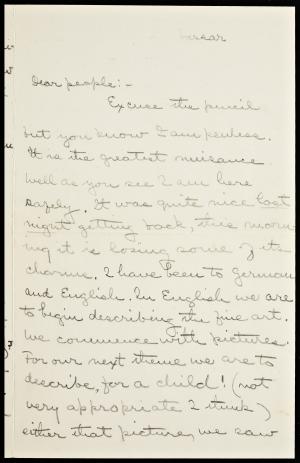 Vassar
Dear people:-
Excuse the pencil
but you know I am penless.
It is the greatest nuisance
Well as you see I am here
safely. It was quite nice last
night getting back, this morn-
ing it is losing some of its
charms. I have been to German
and English. In English we are
to begin describing the fine art.
We commence with pictures.
For our next theme we are to
describe, for a child! (not
very appropriate I think)
either that picture, we saw